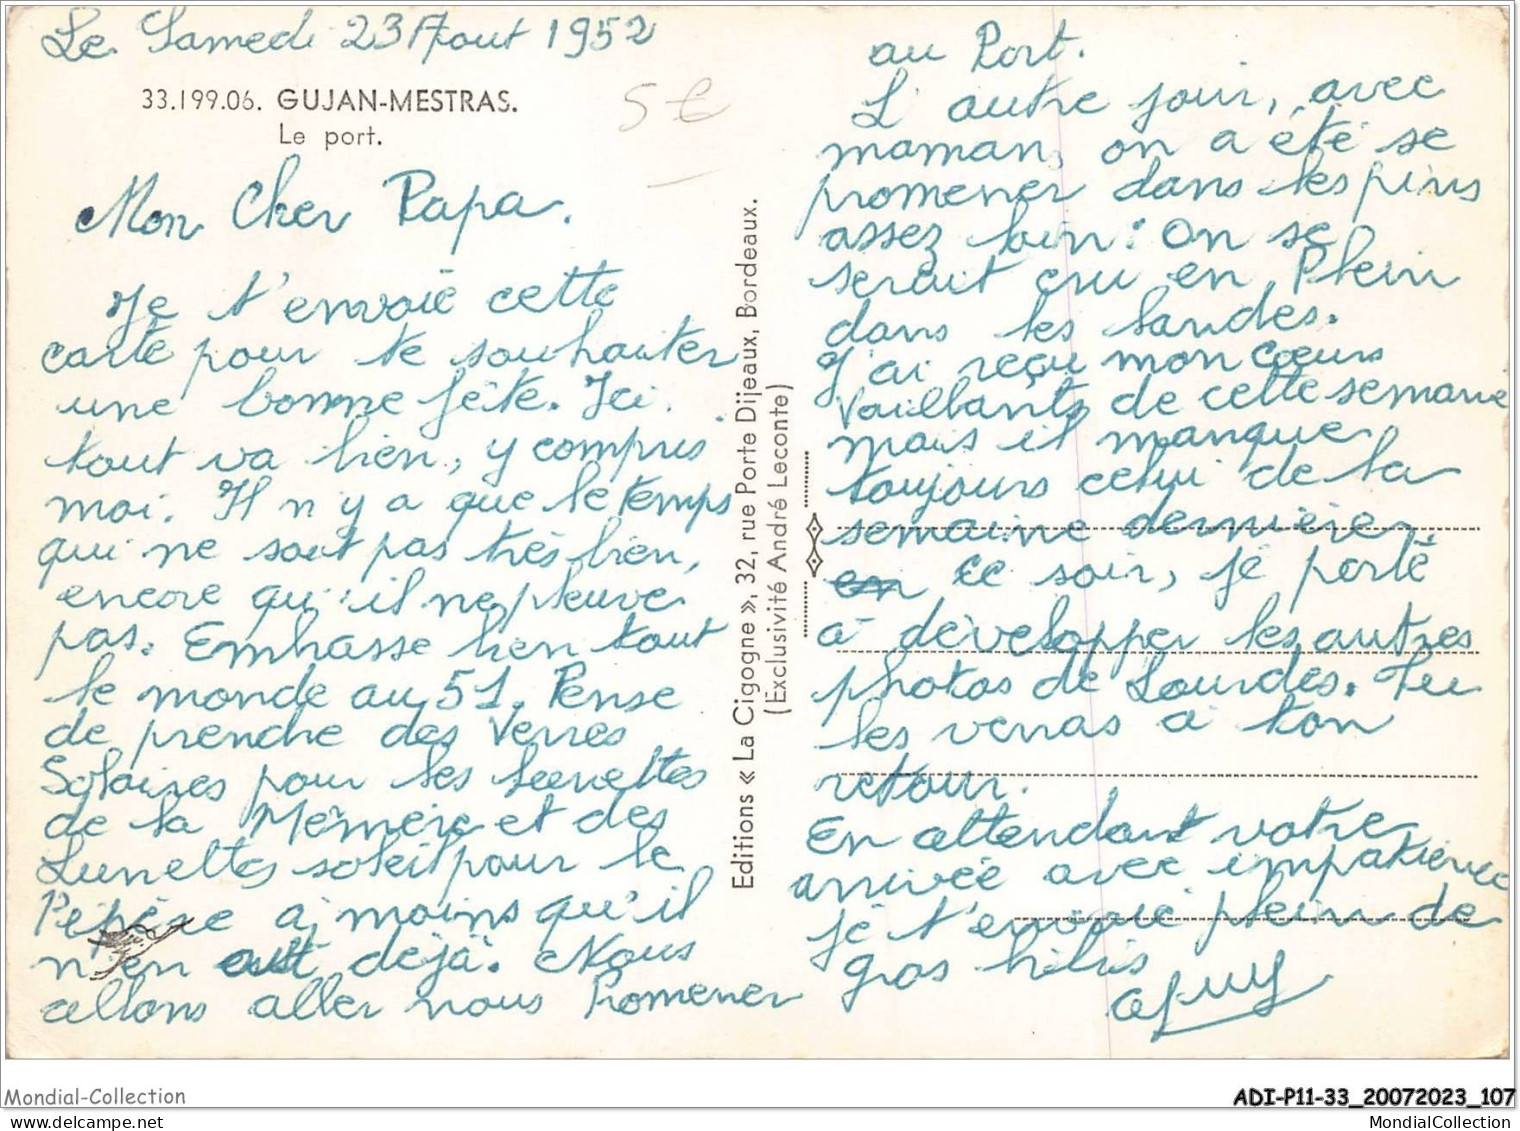 Le Samedi 23 Aout 1952
33.199.06. GUJAN-MESTRAS.
Le port.
5 €
Mon Cher Papa.
Je t'envoie cette
carte pour te souhaiter
une bonne fête. Ici
tout va bien, y compris
moi. Il n'y a que le temps
qui ne soit pas très bien,
encore qu'il ne pleuve
pas. Embrasse bien tout
le monde au 51. Pense
de prendre des Verres
Solaires pour les lunettes
de la Mémère et des
Lunettes soleil pour le
Pépère à moins qu'il
n'en ait déjà. Nous
allons aller nous Promener
Editions « La Cigogne », 32, rue Porte Dijeaux, Bordeaux.
(Exclusivité André Leconte)
au Port.
L'autre jour, avec
maman, on a été se
promener dans les pins
assez loin. On se
serait cru en Plein
dans les landes.
J'ai reçu mon Cœurs
Vaillants de cette semaine
mais il manque
toujours celui de la
semaine dernière.
ce soir, je porte
à développer les autres
photos de Lourdes. Tu
les verras à ton
retour.
En attendant votre
arrivée avec impatience
je t'envoie plein de
gros bibis
Mondial-Collection
ADI-P11-33_20072023_107
MondialCollection